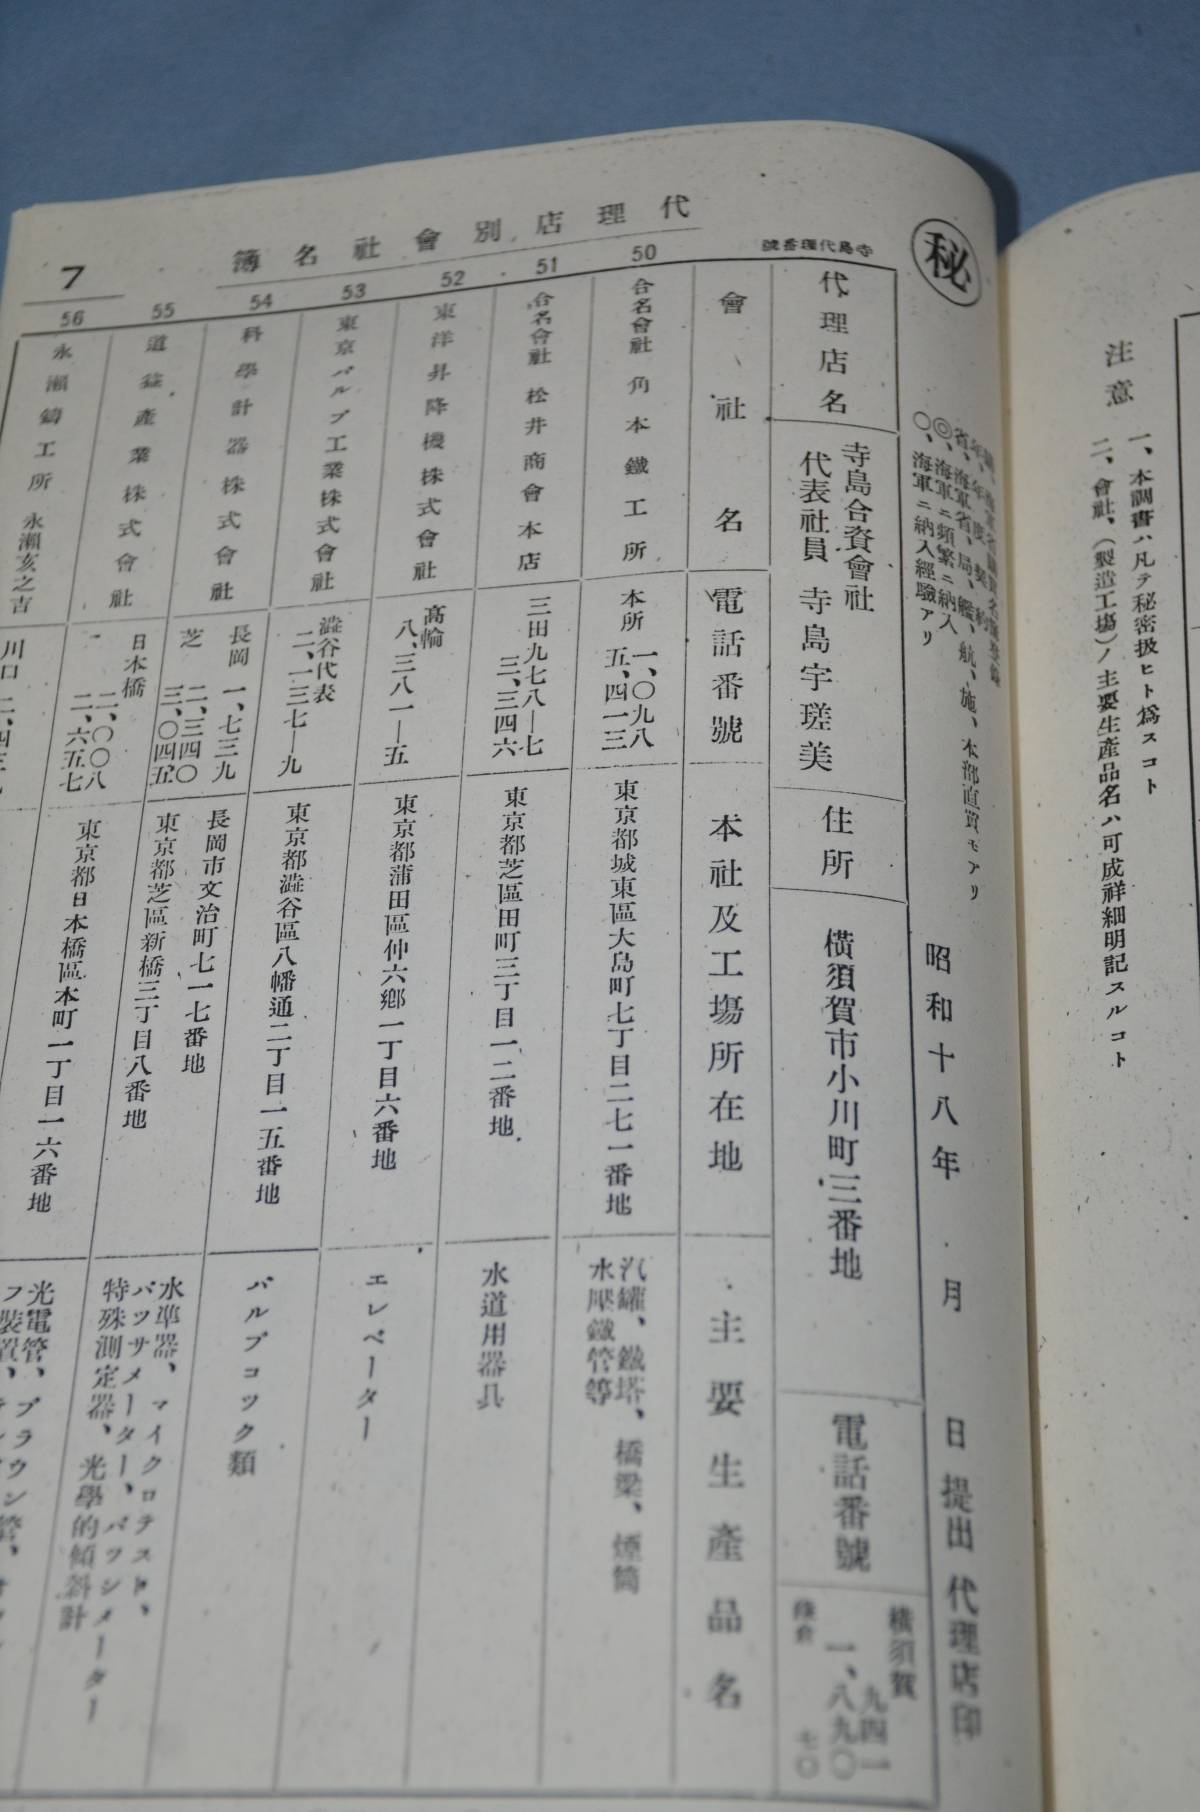 注意
一、本調書ハ凡テ秘密扱ヒト爲スコト
二、會社、(製造工塲)ノ主要生產品名ハ可成祥細明記スルコト
秘
省、海軍省、局、艦、航、施、本部直買モアリ
◎、海軍ニ頻繁ニ納入
〇、海軍ニ納入經驗アリ
昭和十八年 月 日提出 代理店印
寺島代理番號
代理店別會社名簿
7
代理店名
寺島合資會社
代表社員 寺島宇瑳美
住所
橫須賀市小川町三番地
電話番號
橫須賀 九四一
一、八九〇
鎌倉 七〇
會社名
電話番號
本社及工塲所在地
主要生產品名
50
合名會社 角本鐵工所
本所 一、〇九八
五、四一三
東京都城東區大島町七丁目二七一番地
汽罐、鐵塔、橋梁、煙筒
水壓鐵管等
51
合名會社 松井商會本店
三田九七八―七
三、三四六
東京都芝區田町三丁目一二番地
水道用器具
52
東洋昇降機株式會社
高輪
八、三八一―五
東京都蒲田區仲六鄕一丁目六番地
エレベーター
53
東京バルブ工業株式會社
澁谷代表
二、一三七―九
東京都澁谷區八幡通二丁目一五番地
バルブコック類
54
科學計器株式會社
長岡 一、七三九
芝 二、三四〇
三、〇四五
長岡市文治町七一七番地
東京都芝區新橋三丁目八番地
水準器、マイクロテスト、
パッサメーター、パッシメーター
特殊測定器、光學的傾斜計
55
道益產業株式會社
日本橋
二、〇〇八
二、六五七
東京都日本橋區本町一丁目一六番地
光電管、ブラウン管、
フ裝置、
56
永瀨鑄工所 永瀨亥之吉
川口